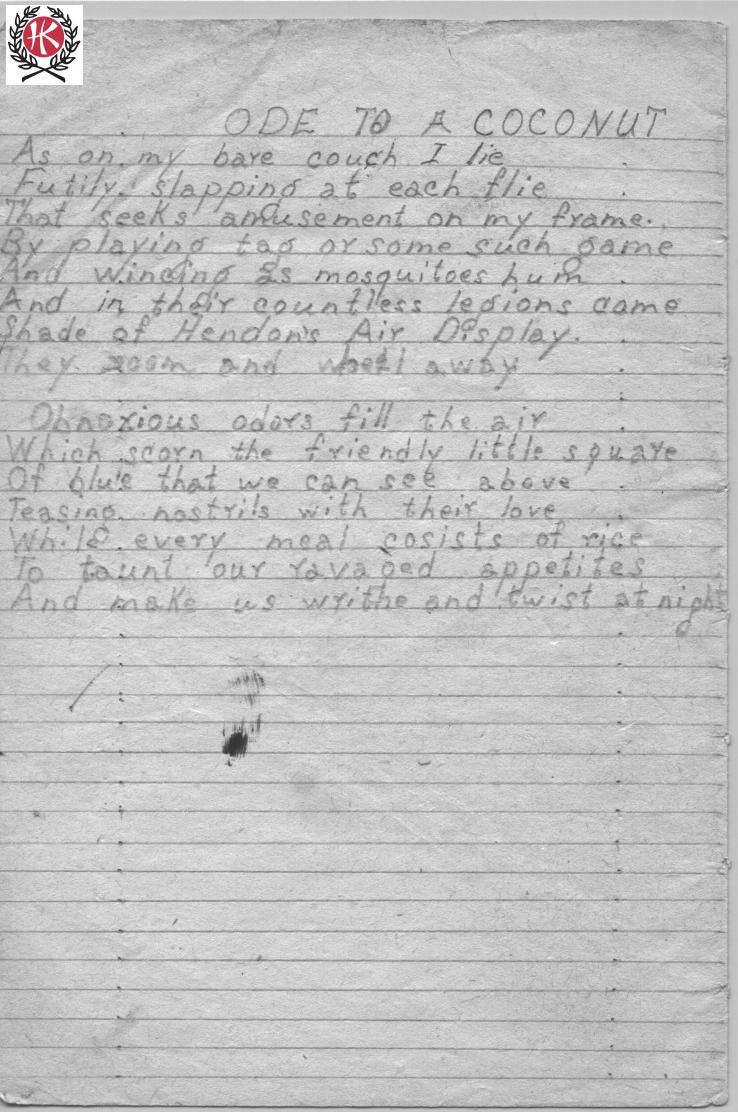 HK
ODE TO A COCONUT
As on my bare couch I lie
Futily slapping at each flie
That seeks amusement on my frame.
By playing tag or some such game
And wincing as mosquitoes hum
And in their countless legions come
Shade of Hendon's Air Display.
They zoom and wheel away
Obnoxious odors fill the air
Which scorn the friendly little square
Of blue that we can see above
Teasing nostrils with their love
While every meal cosists of rice
To taunt our ravaged appetites
And make us writhe and twist at night